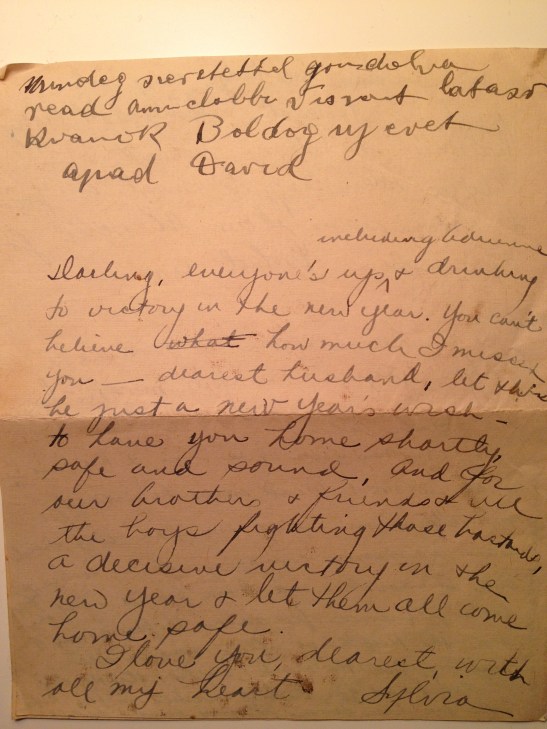 Mindeg szerettettel gondolva
read amnclobbi viszont latasr
Kvanok Boldog uj evet
apad David
including Adrienne
Darling, everyone's up, & drinking
to victory in the new year. You can't
believe what how much I missed
you — dearest husband, let this
be just a new year's wish —
to have you home shortly,
safe and sound, and for
our brothers & friends & all
the boys fighting those bastards,
a decisive victory in the
new year & let them all come
home safe.
I love you, dearest, with
all my heart Sylvia